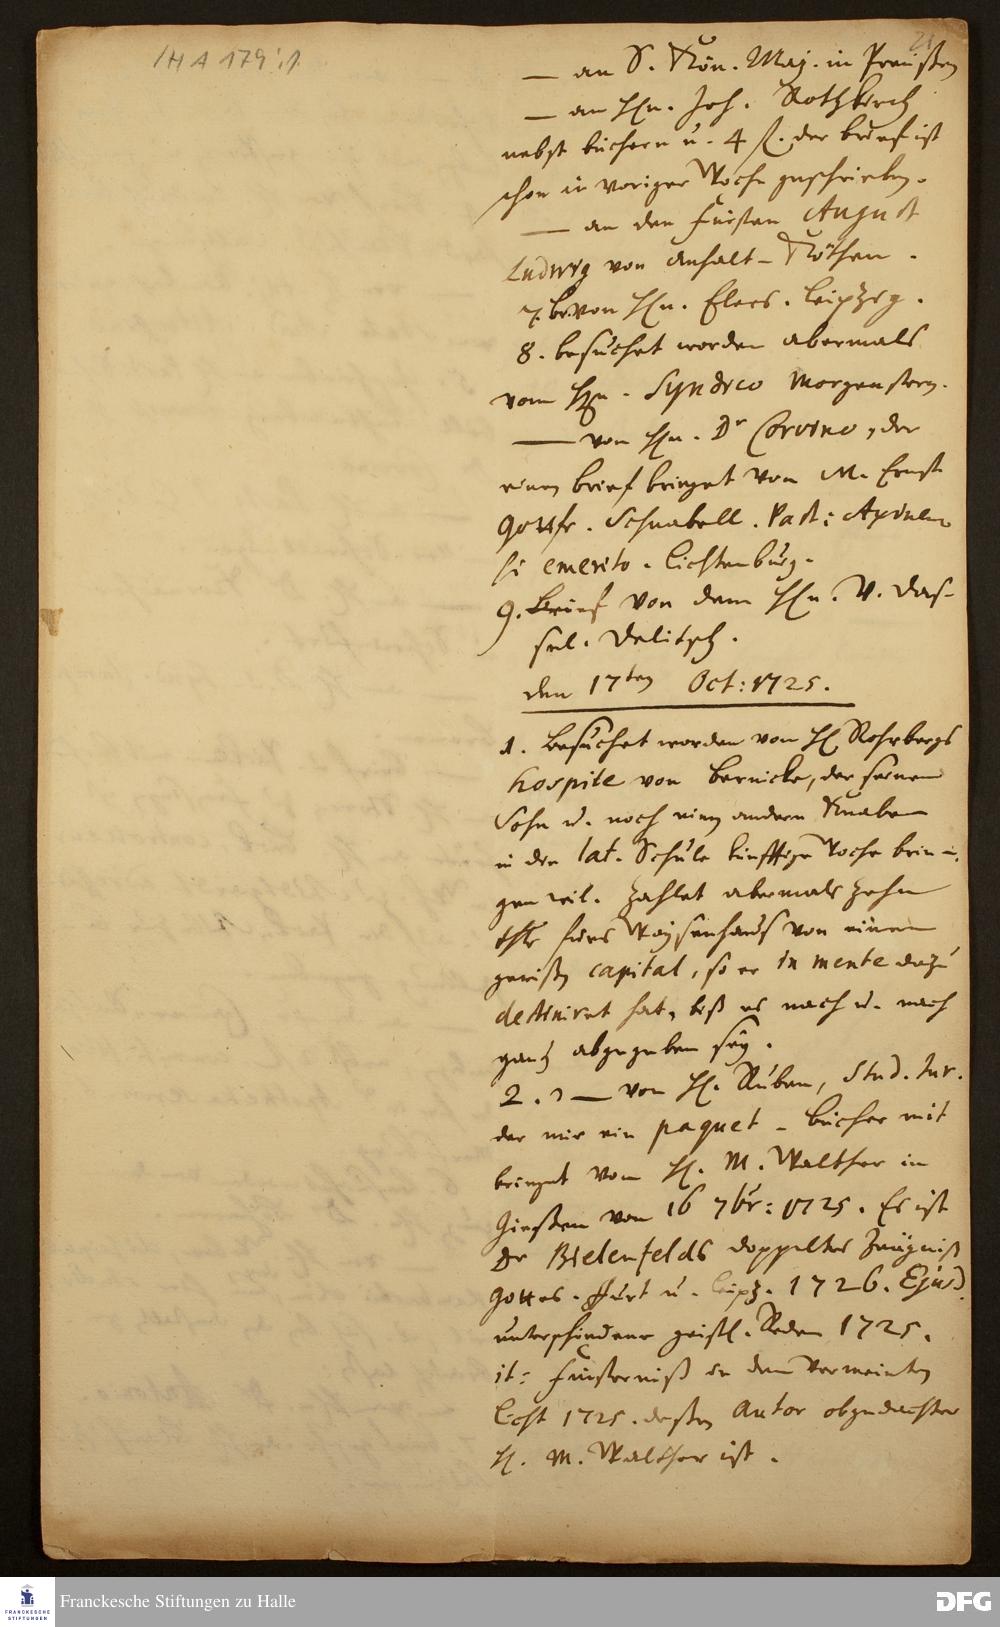 /H A 179:1
21
— an S. Kön. Maj. in Preußen
— an Hn. Joh. Rothkirch
nebst büchern u. 4 f. der brief ist
schon in voriger Woche geschrieben.
— an den Fürsten August
Ludwig von anhalt-Köthen.
7. br. von Hn. Elers. Leipzig.
8. besuchet worden abermals
vom Hn. Syndico Morgenstern.
— von Hn. Dr Corvino, der
einen brief bringet von M. Ernst
Gottfr. Schnabell. Past:
si emerito. Lichtenburg.
9. Brief von dem Hn. V. Das-
sel. Delitsch.
den 17ten Oct: 1725.
1. Besuchet worden von H Rohrbergs
hospite von Bernicke, der seinen
Sohn u. noch einen andern Knaben
in die lat. Schule künfftige Woche brin-
gen will. Zahlet abermals zehn
thlr fürs Waysenhaus von einem
gewißen capital, so er in mente dazu
destiniret hat, biß es nach u. nach
gantz abgegeben sey.
2. — von H. Ruben, Stud. Jur.
der mir ein paquet - Bücher mit
bringet vom H. M. Walther in
Gießen vom 16 7br: 1725. Es ist
Dr Bielenfelds doppeltes Zeügniß
Gottes. Ffurt u. Leipz. 1726. Ejusd.
unterschiedene geistl. Reden 1725.
it: Finsterniß in dem Vermeinten
Licht 1725. deßen Autor obgedachter
H. M. Walther ist.
Franckesche Stiftungen zu Halle
FRANCKESCHE
STIFTUNGEN
DFG